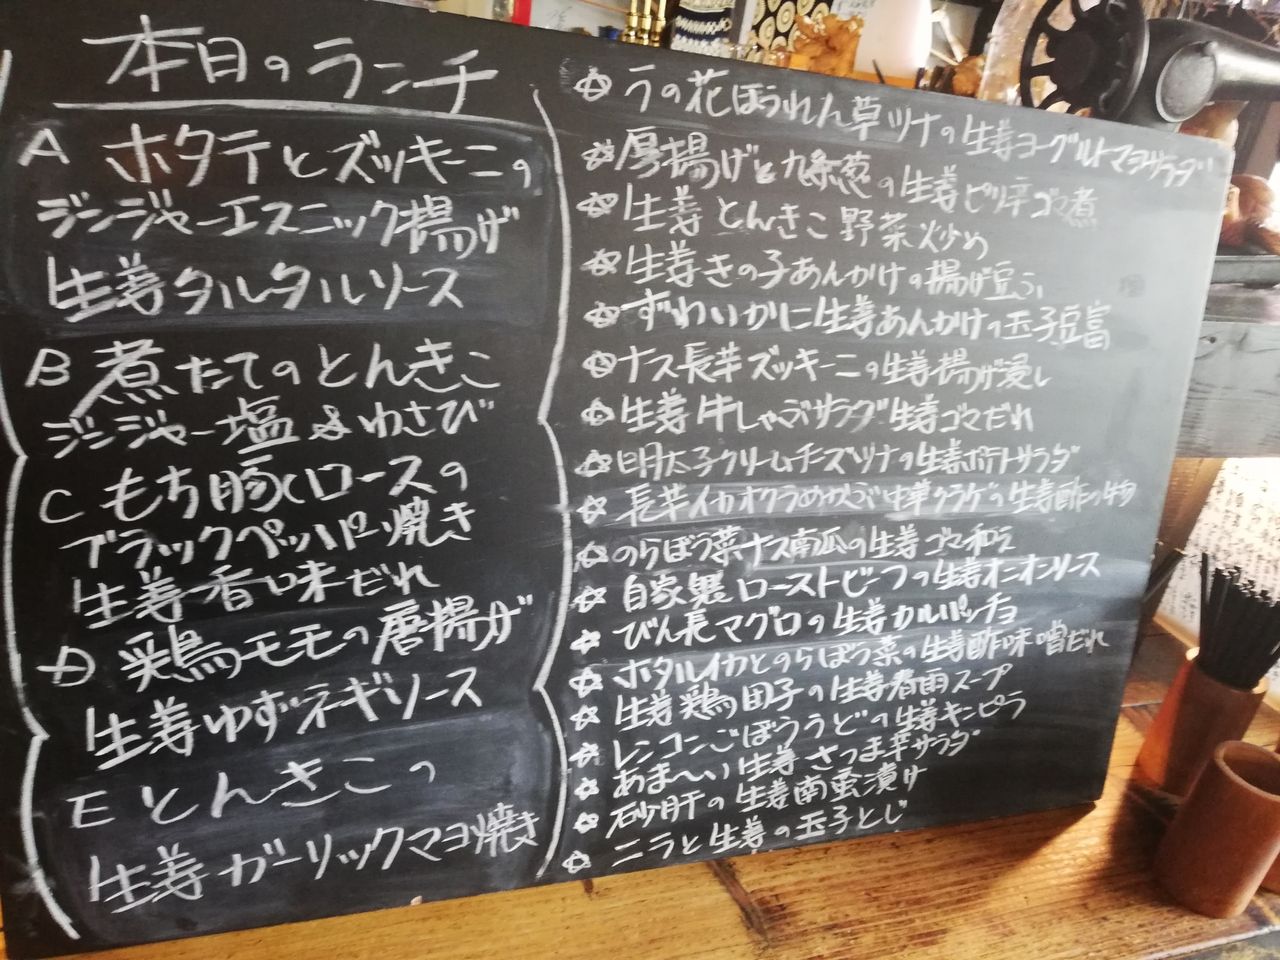 本日のランチ
A ホタテとズッキーニの
ジンジャーエスニック揚げ
生姜タルタルソース
B 煮たてのとんきこ
ジンジャー塩&わさび
C もち豚ロースの
ブラックペッパー焼き
生姜香味だれ
D 鶏モモの唐揚げ
生姜ゆずネギソース
E とんきこの
生姜ガーリックマヨ焼き
☆ うの花ほうれん草ツナの生姜ヨーグルトマヨサラダ
☆ 厚揚げと九条葱の生姜ピリ辛ゴマ煮
☆ 生姜とんきこ野菜炒め
☆ 生姜きの子あんかけの揚げ豆ふ
☆ ずわいかに生姜あんかけの玉子豆富
☆ ナス長芋ズッキーニの生姜揚げ浸し
☆ 生姜牛しゃぶサラダ生姜ゴマだれ
☆ 明太子クリームチーズツナの生姜ポテトサラダ
☆ 長芋イカオクラめかぶ中華クラゲの生姜酢の物
☆ のらぼう菜ナス南瓜の生姜ゴマ和え
☆ 自家製ローストビーフの生姜オニオンソース
☆ びん長マグロの生姜カルパッチョ
☆ ホタルイカとのらぼう菜の生姜酢味噌だれ
☆ 生姜鶏団子の生姜春雨スープ
☆ レンコンごぼううどの生姜キンピラ
☆ あま〜い生姜さつま芋サラダ
☆ 砂肝の生姜南蛮漬け
☆ ニラと生姜の玉子とじ